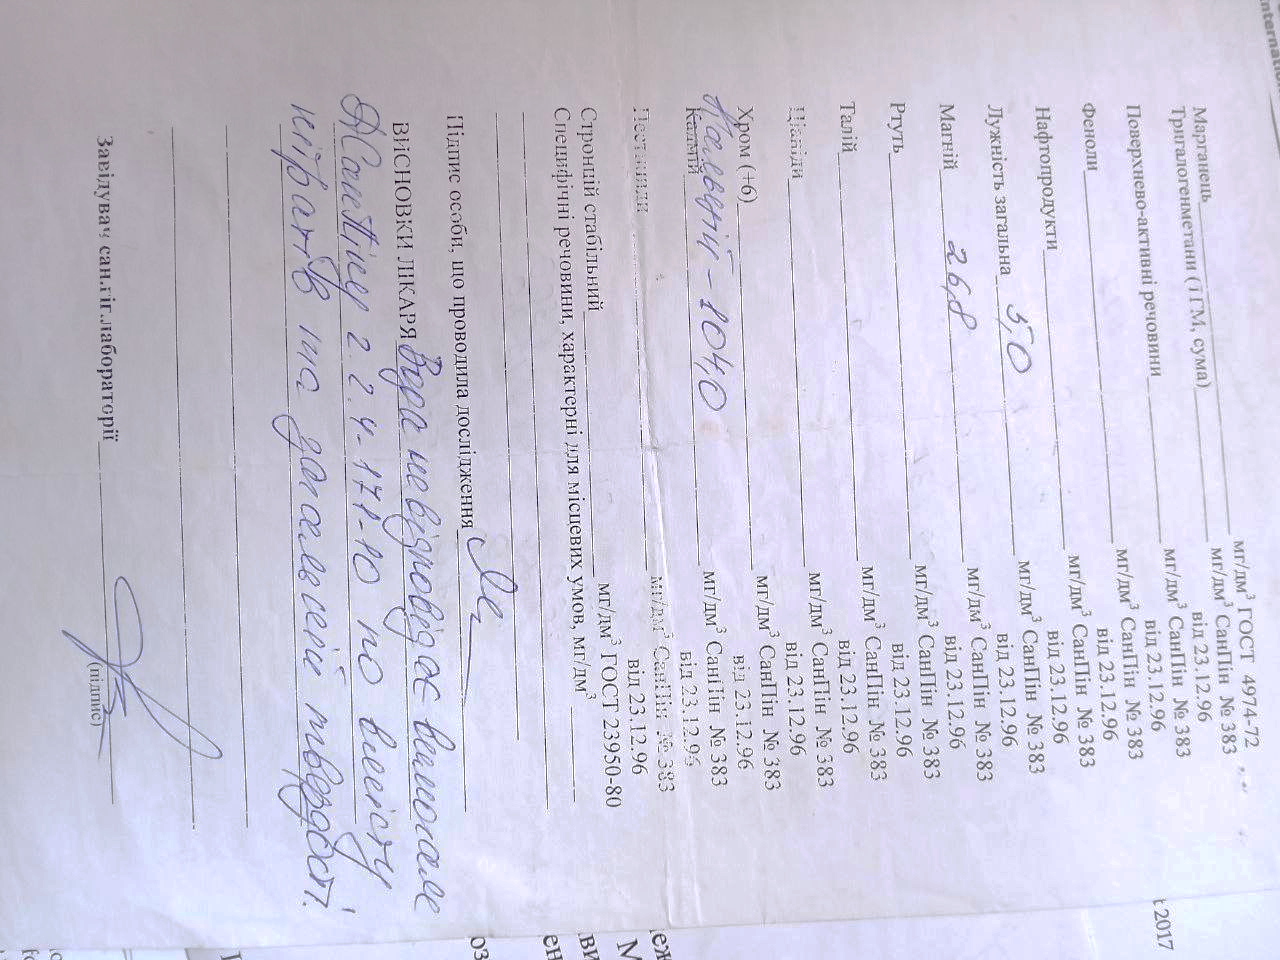 Марганець мг/дм³ ГОСТ 4974-72
Тригалогенметани (ТГМ, сума) мг/дм³ СанПін № 383
від 23.12.96
Поверхнево-активні речовини мг/дм³ СанПін № 383
від 23.12.96
Феноли мг/дм³ СанПін № 383
від 23.12.96
Нафтопродукти мг/дм³ СанПін № 383
від 23.12.96
Лужність загальна 5,0 мг/дм³ СанПін № 383
від 23.12.96
Магній 26,8 мг/дм³ СанПін № 383
від 23.12.96
Ртуть мг/дм³ СанПін № 383
від 23.12.96
Талій мг/дм³ СанПін № 383
від 23.12.96
Ціаніди мг/дм³ СанПін № 383
від 23.12.96
Хром (+6) мг/дм³ СанПін № 383
від 23.12.96
Кальций - 104,0
Кадмій мг/дм³ СанПін № 383
від 23.12.96
Пестициди мг/дм³ СанПін № 383
від 23.12.96
Стронцій стабільний мг/дм³ ГОСТ 23950-80
Специфічні речовини, характерні для місцевих умов, мг/дм³
Підпис особи, що проводила дослідження
ВИСНОВКИ ЛІКАРЯ Вода не відповідає вимогам
ДСанПіну 2.2.4-171-10 по вмісту
нітратів та загальній твердості.
Завідувач сан.гіг.лабораторії
(підпис)
t 2017